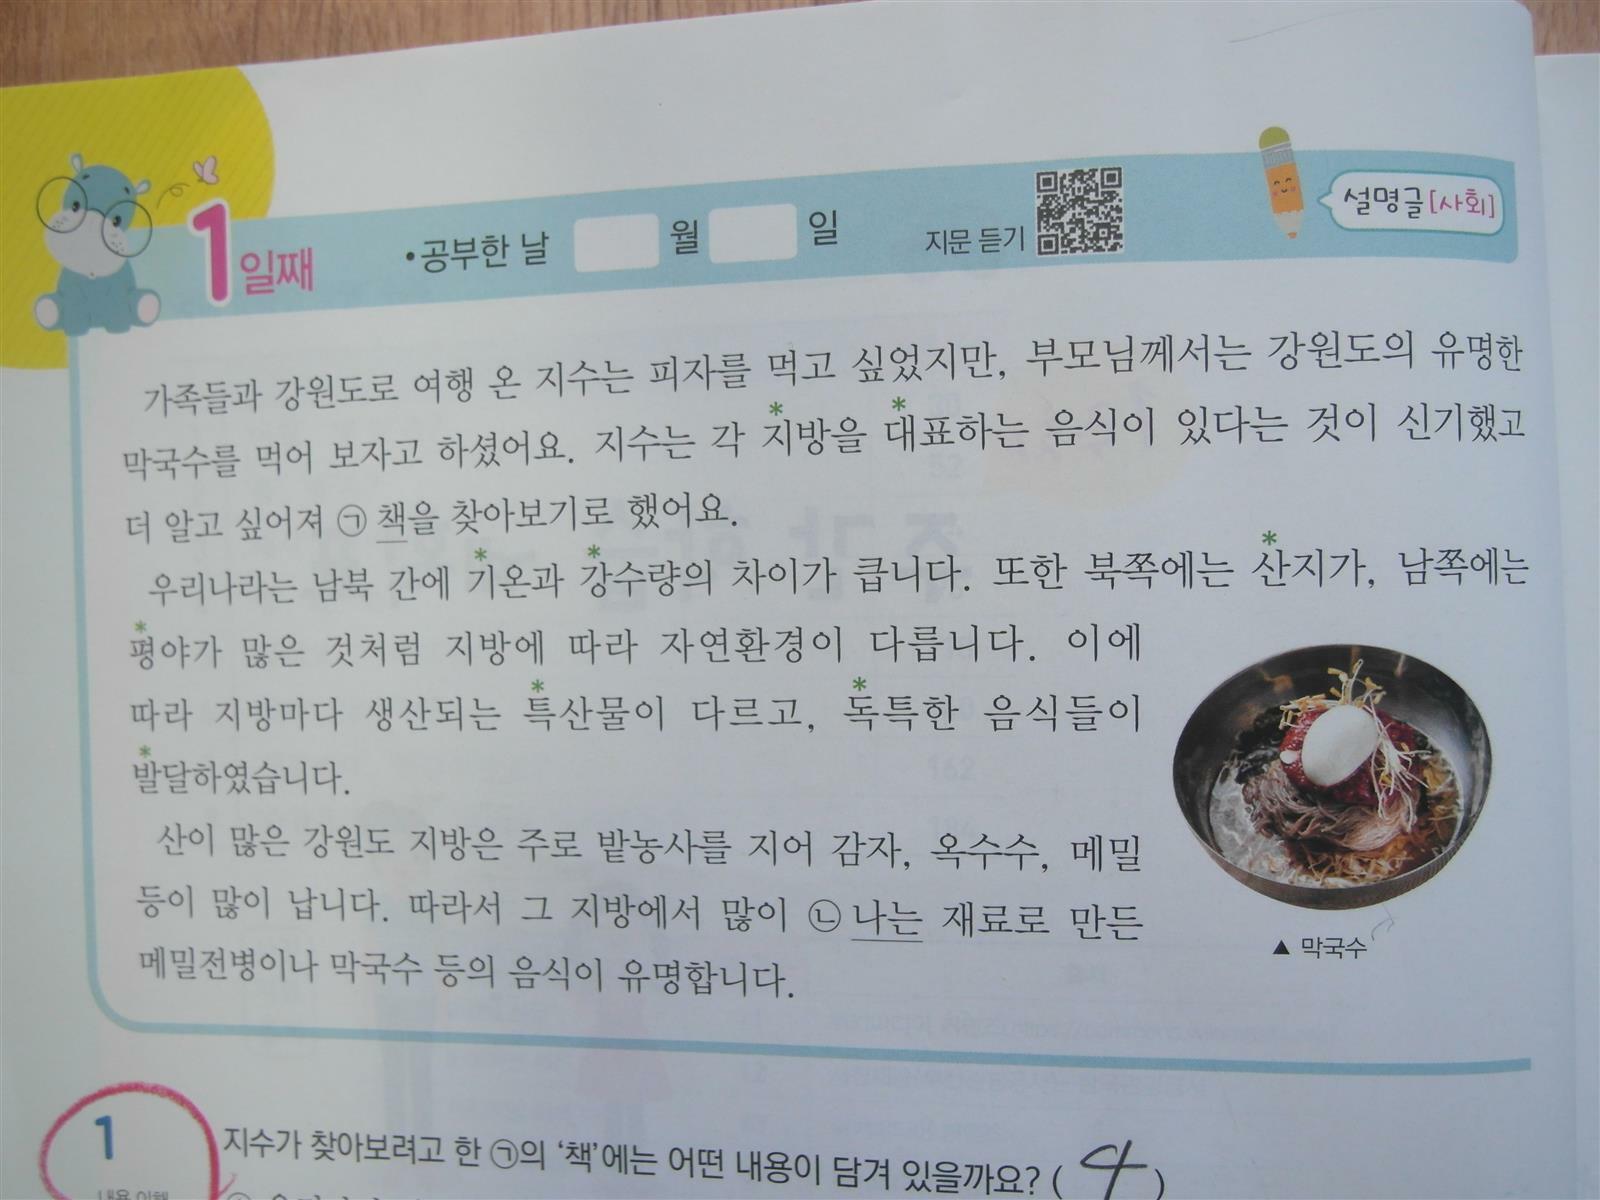 1일째
•공부한 날 월 일
지문 듣기
설명글[사회]
가족들과 강원도로 여행 온 지수는 피자를 먹고 싶었지만, 부모님께서는 강원도의 유명한
막국수를 먹어 보자고 하셨어요. 지수는 각 *지방을 *대표하는 음식이 있다는 것이 신기했고
더 알고 싶어져 ㉠ 책을 찾아보기로 했어요.
우리나라는 남북 간에 *기온과 *강수량의 차이가 큽니다. 또한 북쪽에는 *산지가, 남쪽에는
*평야가 많은 것처럼 지방에 따라 자연환경이 다릅니다. 이에
따라 지방마다 생산되는 *특산물이 다르고, *독특한 음식들이
*발달하였습니다.
산이 많은 강원도 지방은 주로 밭농사를 지어 감자, 옥수수, 메밀
등이 많이 납니다. 따라서 그 지방에서 많이 ㉡ 나는 재료로 만든
메밀전병이나 막국수 등의 음식이 유명합니다.
▲ 막국수
1
지수가 찾아보려고 한 ㉠의 ‘책’에는 어떤 내용이 담겨 있을까요? ( 4 )
내용 이해